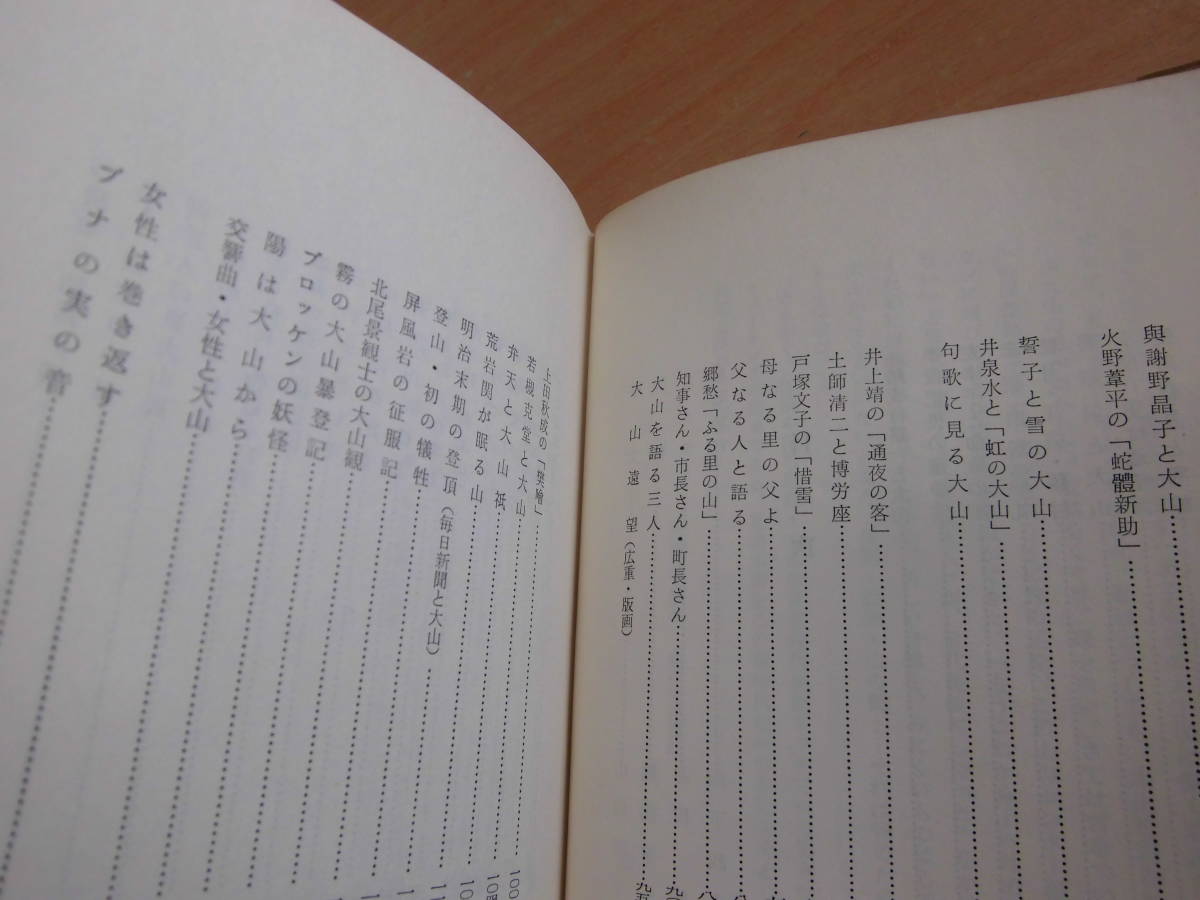 與謝野晶子と大山
火野葦平の「蛇體新助」
誓子と雪の大山
井泉水と「虹の大山」
句歌に見る大山
井上靖の「通夜の客」
土師清二と博労座
戸塚文子の「惜雪」
母なる里の父よ
父なる人と語る
郷愁「ふる里の山」
知事さん・市長さん・町長さん
大山を語る三人
大山遠望(広重・版画)
上田秋成の「樊噲」
若槻克堂と大山
弁天と大山祇
荒岩関が眠る山
明治末期の登頂(毎日新聞と大山)
登山・初の犠牲
屏風岩の征服記
北尾景観士の大山観
霧の大山暴登記
ブロッケンの妖怪
陽は大山から
交響曲・女性と大山
女性は巻き返す
ブナの実の音